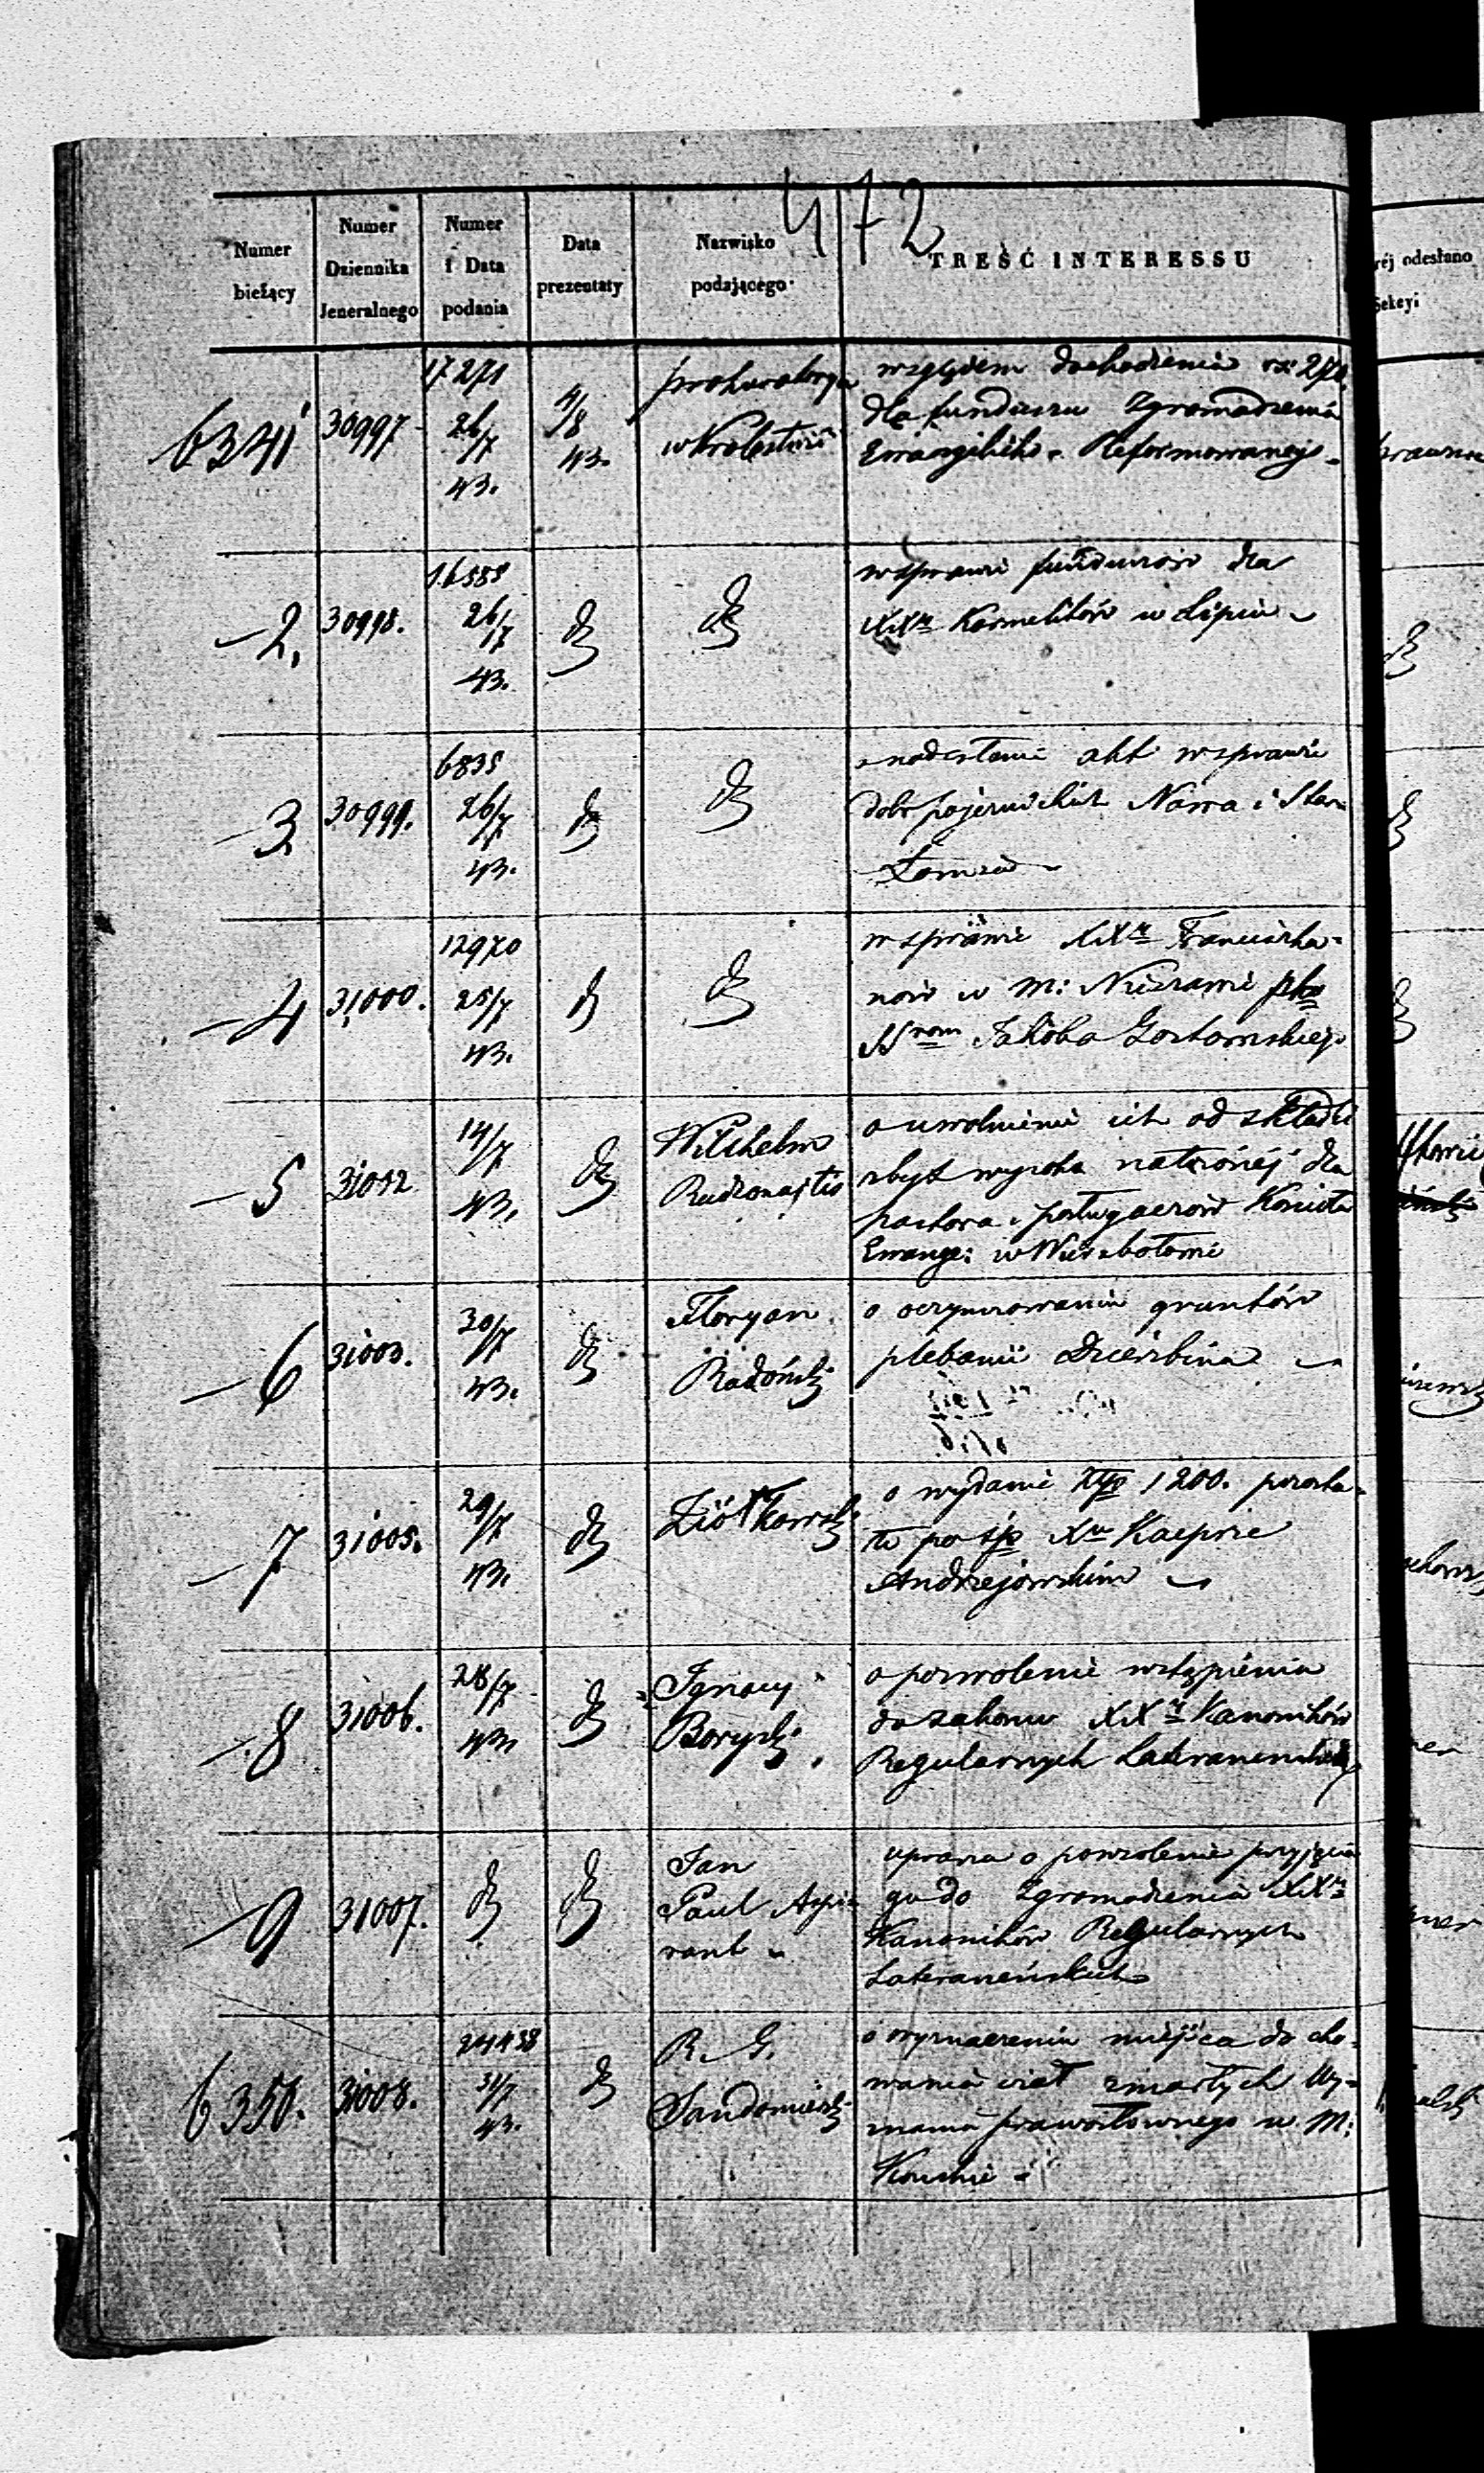 472
Numer bieżący
Numer Dziennika Jeneralnego
Numer i Data podania
Data prezentaty
Nazwisko podającego
TREŚĆ INTERESSU
réj odesłano
Sekcyi
6341 30997 17271 26/7 43. 4/8 43. prokuratorya w Królestwie
względem dochodzenia rs: 270
dla funduszu Zgromadzenia
Ewangelicko-Reformowanego
2. 30998. 26/7 43. dto dto
w sprawie funduszów dla
XXrr Karmelitów w Lipiu
3. 30999. 6835 26/7 43. dto dto
o nadesłanie akt w sprawie
dobr pojezuickich Nowa i Stara
Łomża
4 31000. 12970 25/7 43. dto dto
w sprawie XXrr Franciszka-
nów w m: Nieszawie
Jakóba
5 31002 14/7 43. dto Wilhelm
o uwolnienie ich od składki
zbyt wysoko nałożonéj dla
pastora i posługaczów Kościoła
Ewange: w Wierzbołowie
6 31003. 30/7 43. dto Floryan Radoński
o oczynszowanie gruntów
plebanii Dzierzbina
7 31005. 29/7 43. dto Ziółkowski
o wydanie złp 1200. pozosta-
łe po śp Xu Kacprze
Andrzejowskim
8 31006. 28/7 43. dto Ignacy Borycki
o pozwolenie wstąpienia
do zakonu XXrr Kanoników
Regularnych Lateraneńskich
9 31007. dto dto Jan Paul Aspi-
rant
uprasza o pozwolenie przyjęcia
go do Zgromadzenia XXrr
Kanoników Regularnych
Lateraneńskich
6350. 31008. 24438 31/7 43. dto R. G. Sandomierski
o wyznaczeniu miejsca do cho-
wania ciał zmarłych Wy-
znania prawosławnego w M:
Końskie